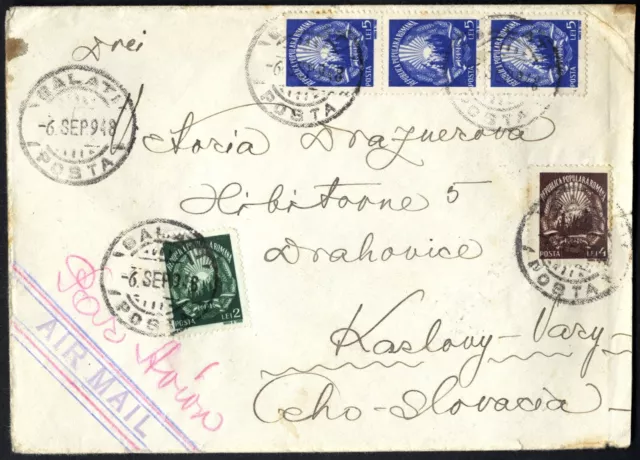 Drei
GALATI
-6.SEP.948
POSTA
REPUBLICA POPULARA ROMANA
POSTA LEI 5
REPUBLICA POPULARA ROMANA
POSTA LEI 5
REPUBLICA POPULARA ROMANA
POSTA LEI 5
POSTA
Draznerova
5
REPUBLICA POPULARA ROMANA
POSTA LEI 4
POSTA
Drahovice
GALATI
-6.SEP.948
POSTA
REPUBLICA POPULARA ROMANA
POSTA LEI 2
Kaslovy-Vary
Cho-Slovacia
Par Avion
AIR MAIL